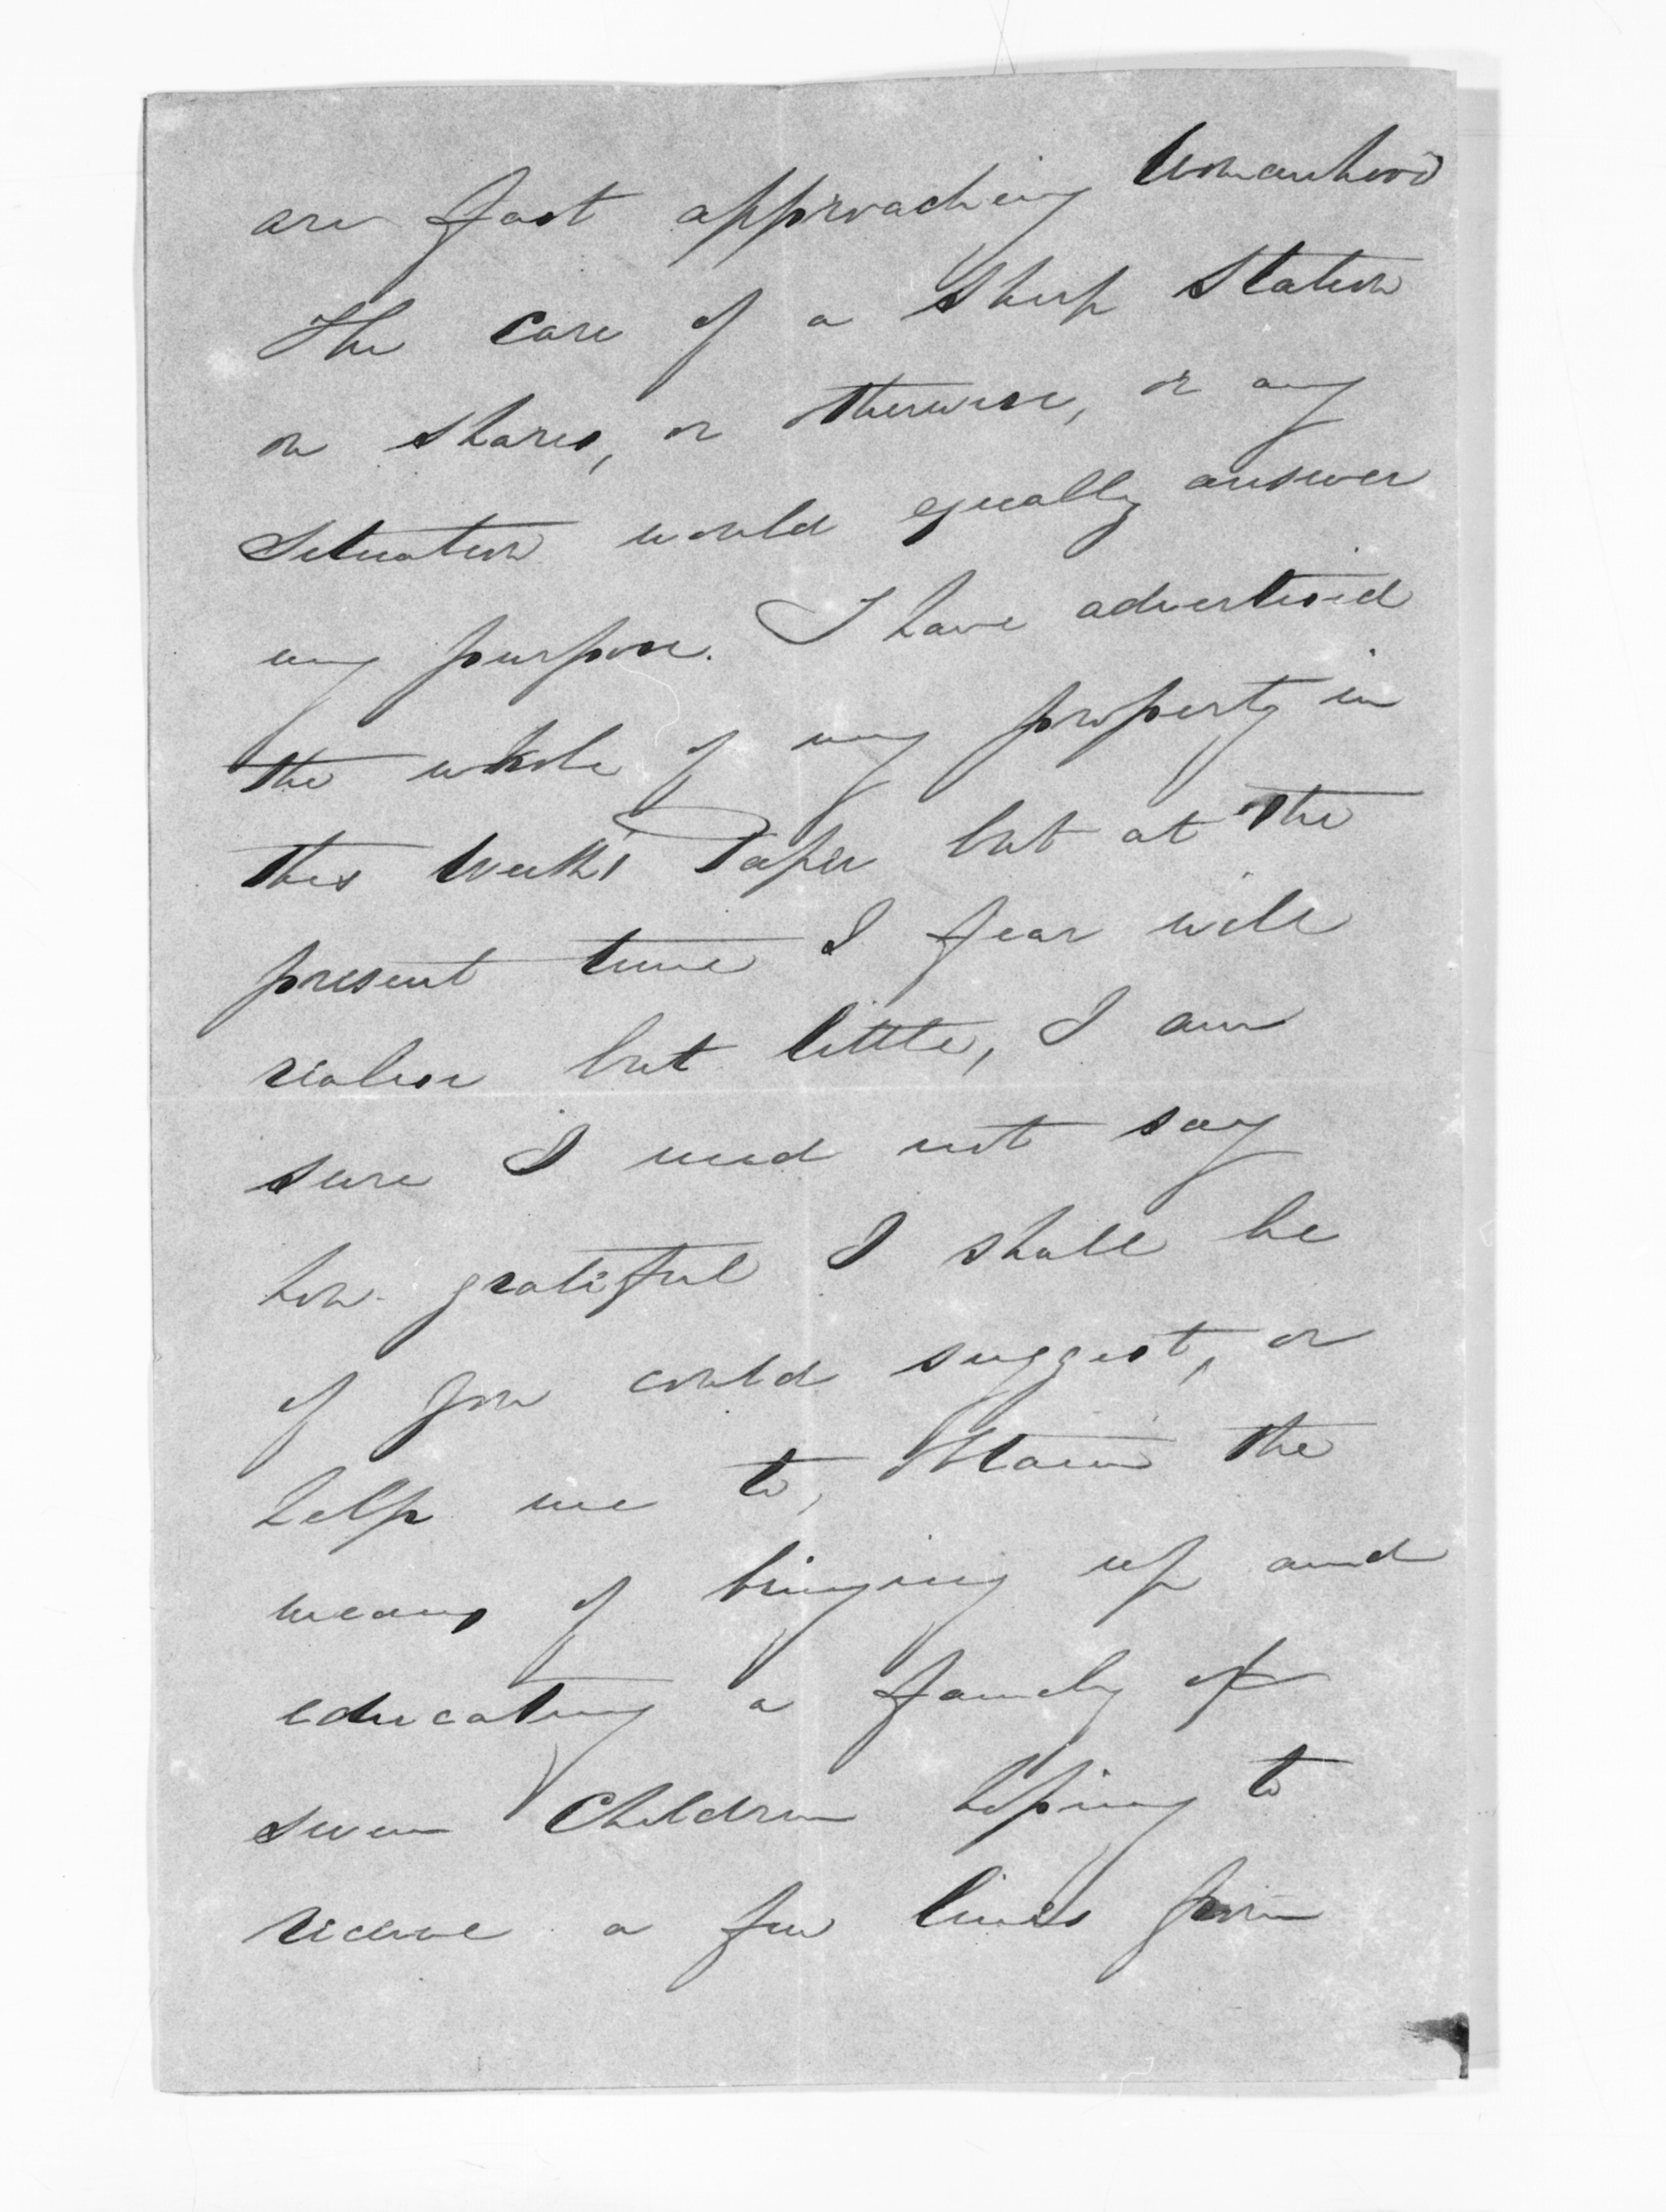 are fast approaching Womanhood
The care of a Sheep Station
on shares, or otherwise, or any
situation would equally answer
my purpose. I have advertised
the whole of my property in
this Week's Paper but at the
present time I fear will
realise but little, I am
sure I need not say
how grateful I shall be
if you could suggest, or
help me to, attain the
means of bringing up and
educating a family of
seven Children hoping to
receive a few lines from